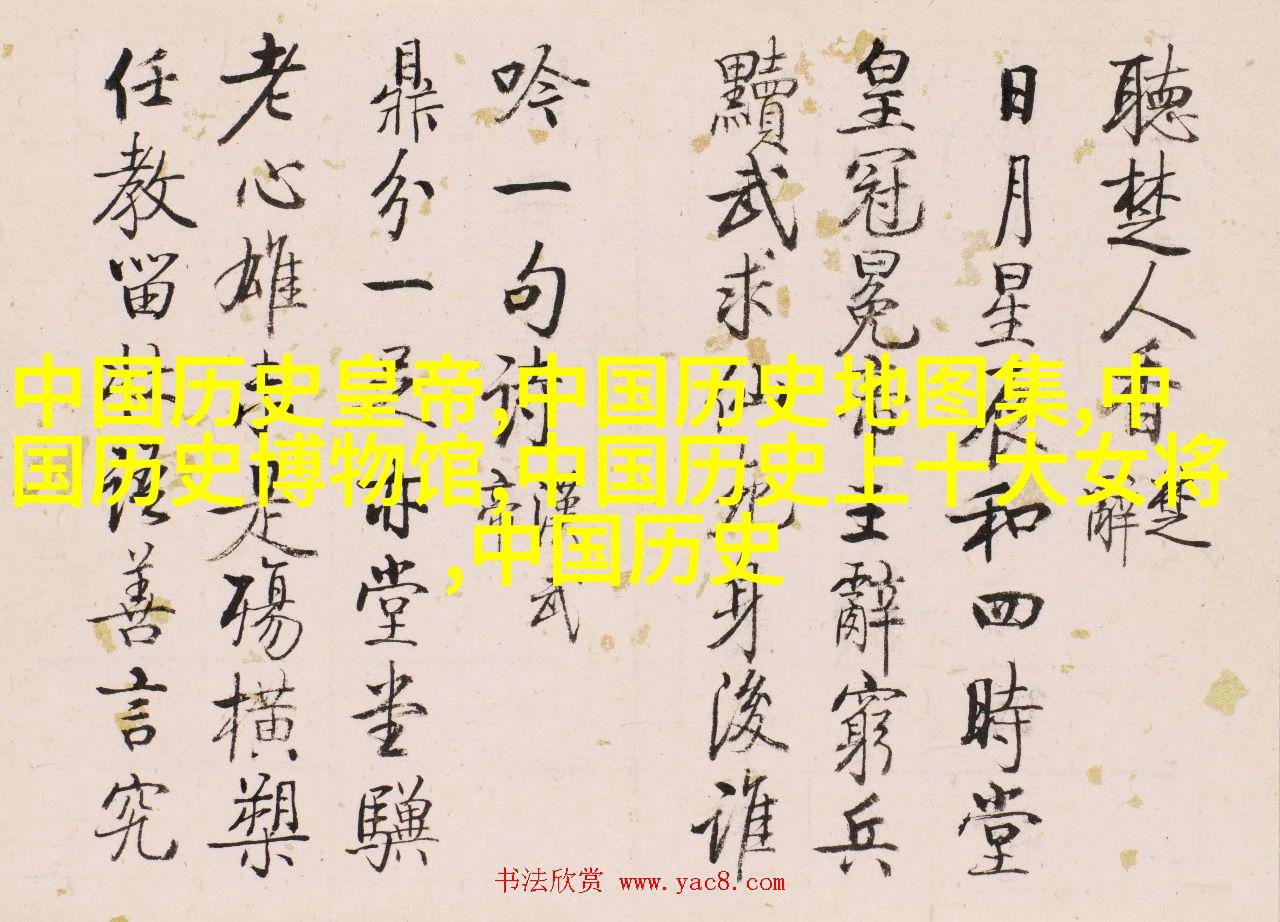 聽楚人香
楚辭
日月星辰和四時堂
皇冠冕帝王辭窮兵
黷武求仙死身後誰
吟一句詩
漢武帝
鼎分一足亦堂堂驥
老心雄是殤橫槊
任教留語善言究
中国历史皇帝,中国历史地图集,中
国历史博物馆,中国历史上十大女将
,中国历史
书法欣赏 www.yac8.com